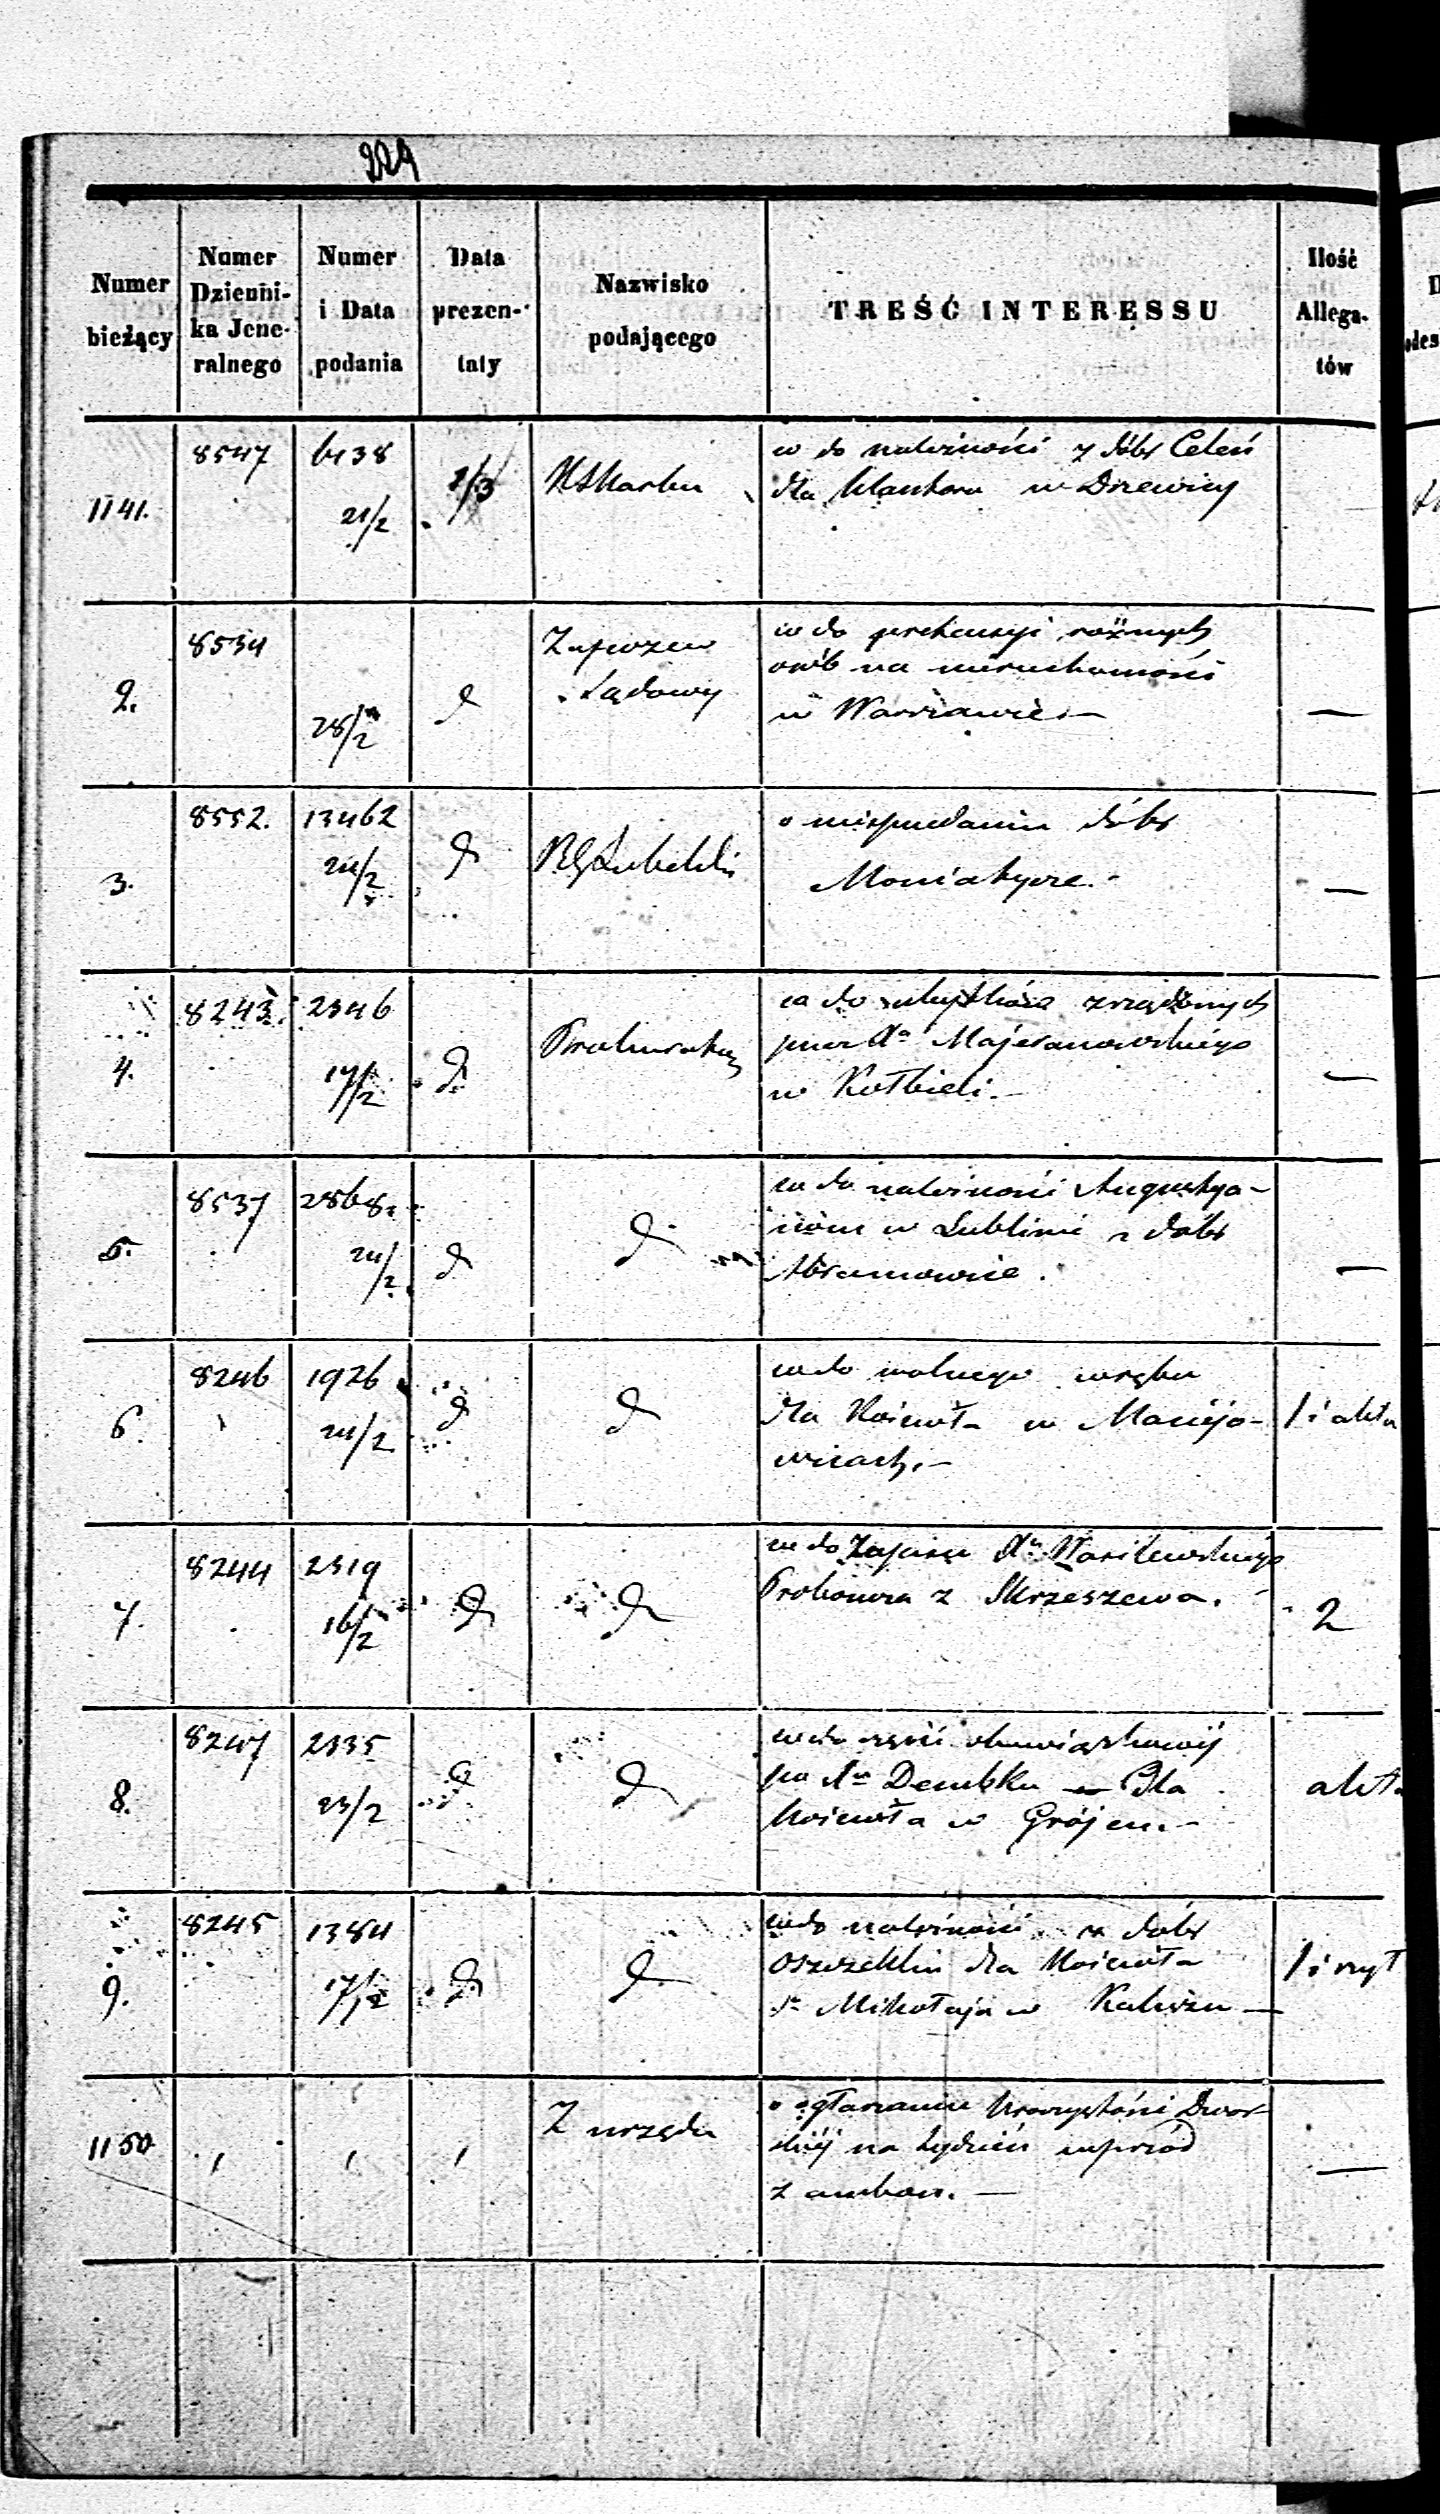 224
Numer bieżący
Numer Dzienni-ka Jene-ralnego
Numer i Data podania
Data prezen-taty
Nazwisko podającego
TREŚĆ INTERESSU
Ilość Allega-tów
1141.
8547
6138
21/2
2/3
w do należności z dóbr Celeń
dla Klasztoru w Drzewicy
2.
8534
28/2
d
Zapozew
Sądowy
w do pretensyi różnych
osób na nieruchomości
w Warszawie. —
—
3.
8552.
13462
24/2
d
RG Lubelski
o niesprzedaniu dóbr
Moniatycze. -
—
4.
8243.
2346
17/2
d
Prokurator
w do zrządzonych
przez Xa Majeranowskiego
w Kołbieli. —
—
5.
8537
2868.
24/2
d
d
w do należności Augustya-
nów w Lublinie z dóbr
Abramowice.
—
6.
8246
1926
24/2
d
d
w do wolnego wrębu
dla Kościoła w Maciejo-
wicach. —
1 i akta
7.
8244
2319
16/2
d
d
w do Zapisu Xa Wasilewskiego
Proboszcza z Skrzeszewa.
2
8.
8247
2335
23/2
d
d
w do części obowiązkowej
po Xu Dembku dla
Kościoła w Grójcu. —
akta
9.
8245
1384
17/2
d
d
w do należności z dóbr
Oszczeklin dla Kościoła
St Mikołaja w Kaliszu —
1 i
1150
Z urzędu
o ogłaszaniu Uroczystości Dwor-
skiej na tydzień wprzód
z ambon. —
—